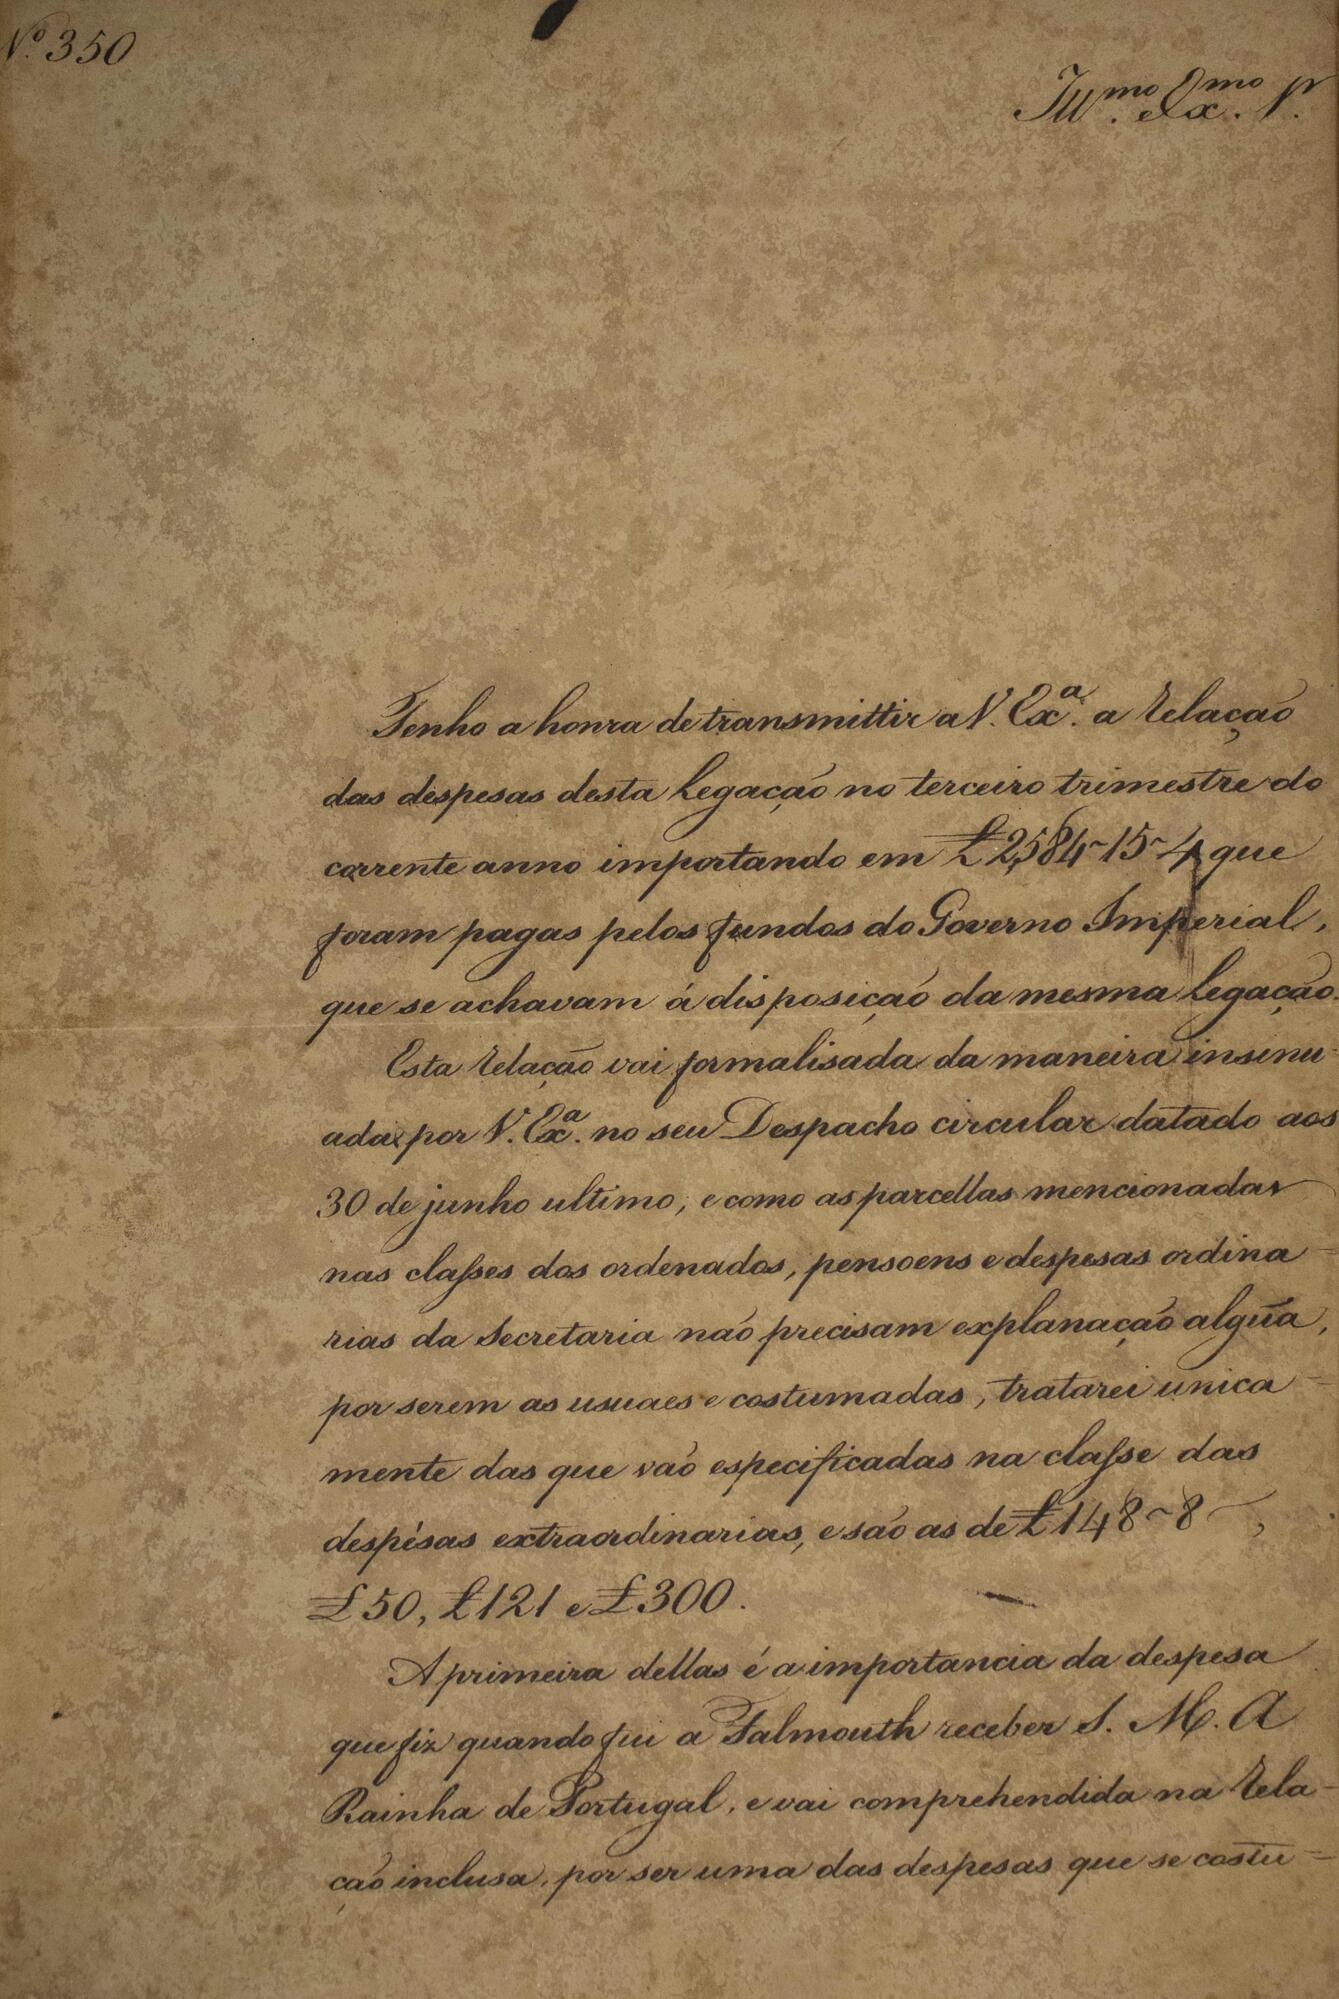 Nº 350
Ill.mo Ex.mo
Tenho a honra de transmittir a V. Ex.a a relação
das despesas desta Legação no terceiro trimestre do
corrente anno importando em £2,584~15~4 que
foram pagas pelos fundos do Governo Imperial,
que se achavam á disposição da mesma Legação.
Esta relação vai formalisada da maneira insinu-
ada por V. Ex.a no seu Despacho circular datado aos
30 de junho ultimo, e como as parcellas mencionadas
nas classes dos ordenados, pensoens e despesas ordina-
rias da Secretaria não precisam explanação algũa,
por serem as usuaes e costumadas, tratarei unica-
mente das que vão especificadas na classe das
despésas extraordinarias, e são as de £148~8~,
£50, £121 e £300.
A primeira dellas é a importancia da despesa
que fiz quando fui a Falmouth receber S. M. A
Rainha de Portugal, e vai comprehendida na rela-
ção inclusa, por ser uma das despesas que se costu-